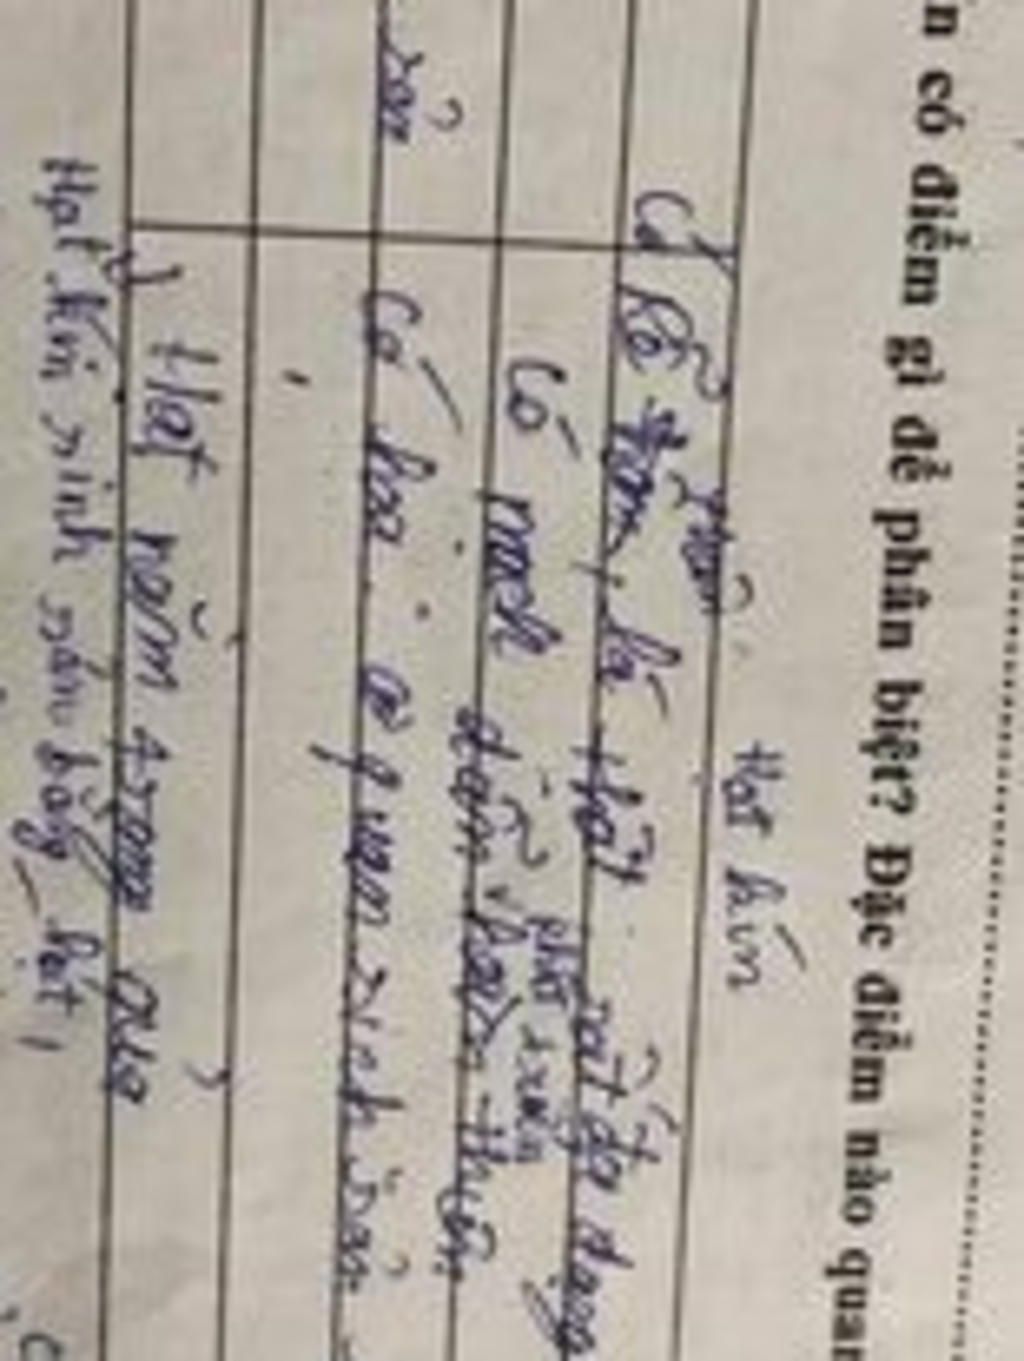 n có điểm gì để phân biệt? Đặc điểm nào quan
Hạt kín
Cơ
Rễ, thân, lá thật rất đa dạng
phát triển
Có mạch dẫn hoàn thiện
sản
Có hoa. cơ quan sinh sản
Hạt nằm trong quả
Hạt kín sinh sản bằng hạt